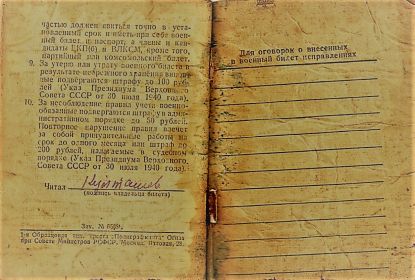 частью должен явиться точно в установленный срок и иметь при себе военный билет и паспорт, а члены и кандидаты ВКП(б) и ВЛКСМ, кроме того, партийный или комсомольский билет.
9. За утерю или утрату военного билета в
результате небрежного хранения виновные
подвергаются штрафу до 100
рублей (Указ Президиума Верховного
Совета СССР от 30 июля 1940 года).
10. За несоблюдение правил учета военно-
обязанные подвергаются штрафу в адми-
нистративном порядке до 50 рублей.
Повторное нарушение правил влечет
за собой принудительные работы на
срок до одного месяца или штраф до
200 рублей, налагаемые в судебном
порядке (Указ Президиума Верховного
Совета СССР от 30 июля 1940 года).
Читал
(подпись владельца билета)
Зак. №
1-я Образцовая тип. треста „Полиграфкнига“ Огиза
при Совете Министров РСФСР. Москва,
Для оговорок о внесенных
в военный билет исправлениях